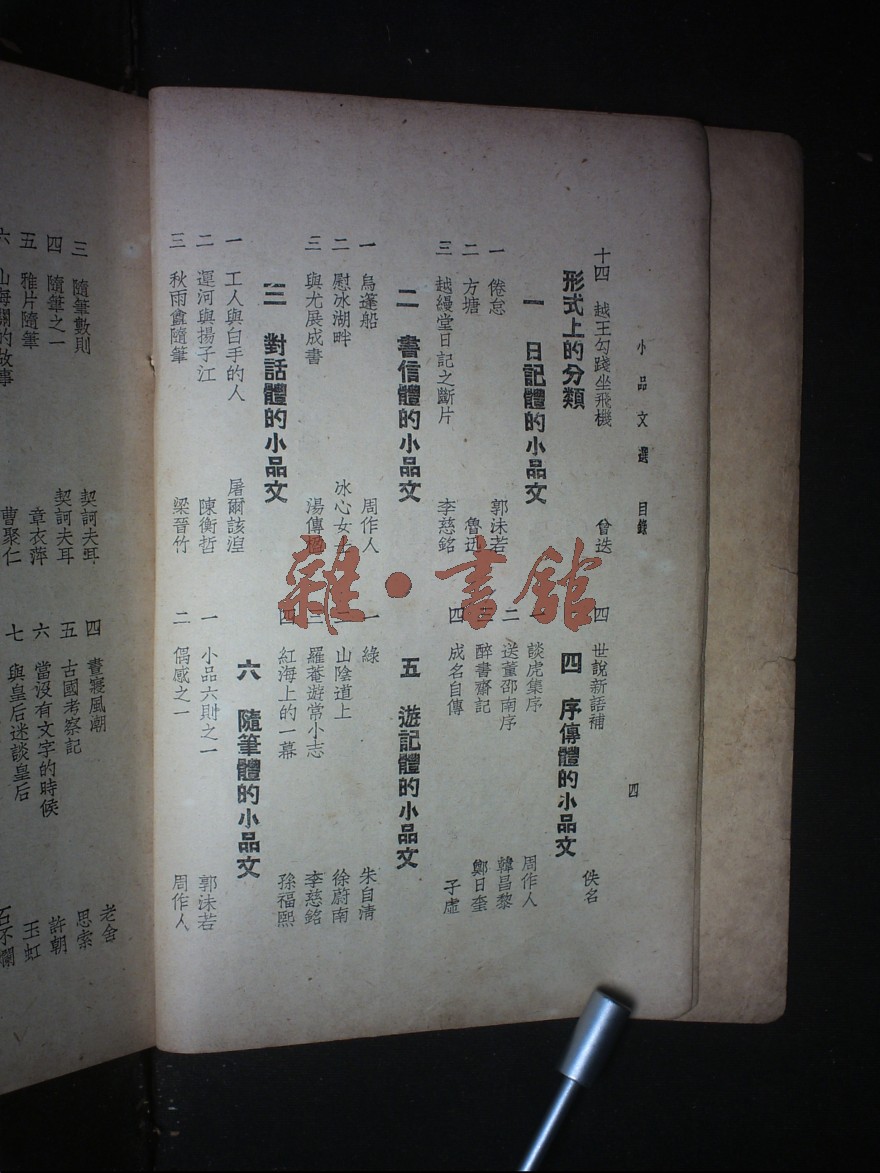 小品文選 目錄 四
十四 越王勾踐坐飛機 曾迭
形式上的分類
一 日記體的小品文
一 倦怠 郭沫若
二 方塘 魯迅
三 越縵堂日記之斷片 李慈銘
二 書信體的小品文
一 烏蓬船 周作人
二 慰冰湖畔 冰心女士
三 與尤展成書 湯傳楹
三 對話體的小品文
一 工人與白手的人 屠爾該湼
二 運河與揚子江 陳衡哲
三 秋雨盦隨筆 梁晉竹
四 世說新語補 佚名
四 序傳體的小品文
一 談虎集序 周作人
二 送董邵南序 韓昌黎
三 醉書齋記 鄭日奎
四 成名自傳 子虛
五 遊記體的小品文
一 綠 朱自清
二 山陰道上 徐蔚南
三 羅菴遊常小志 李慈銘
四 紅海上的一幕 孫福熙
六 隨筆體的小品文
一 小品六則之一 郭沫若
二 偶感之一 周作人
三 隨筆數則 契訶夫耳
四 隨筆之一 契訶夫耳
五 雅片隨筆 章衣萍
六 山海關的故事 曹聚仁
四 晝寢風潮 老舍
五 古國考察記 思索
六 當沒有文字的時候 許朝
七 與皇后迷談皇后 玉虹
石不爛
雜·書館